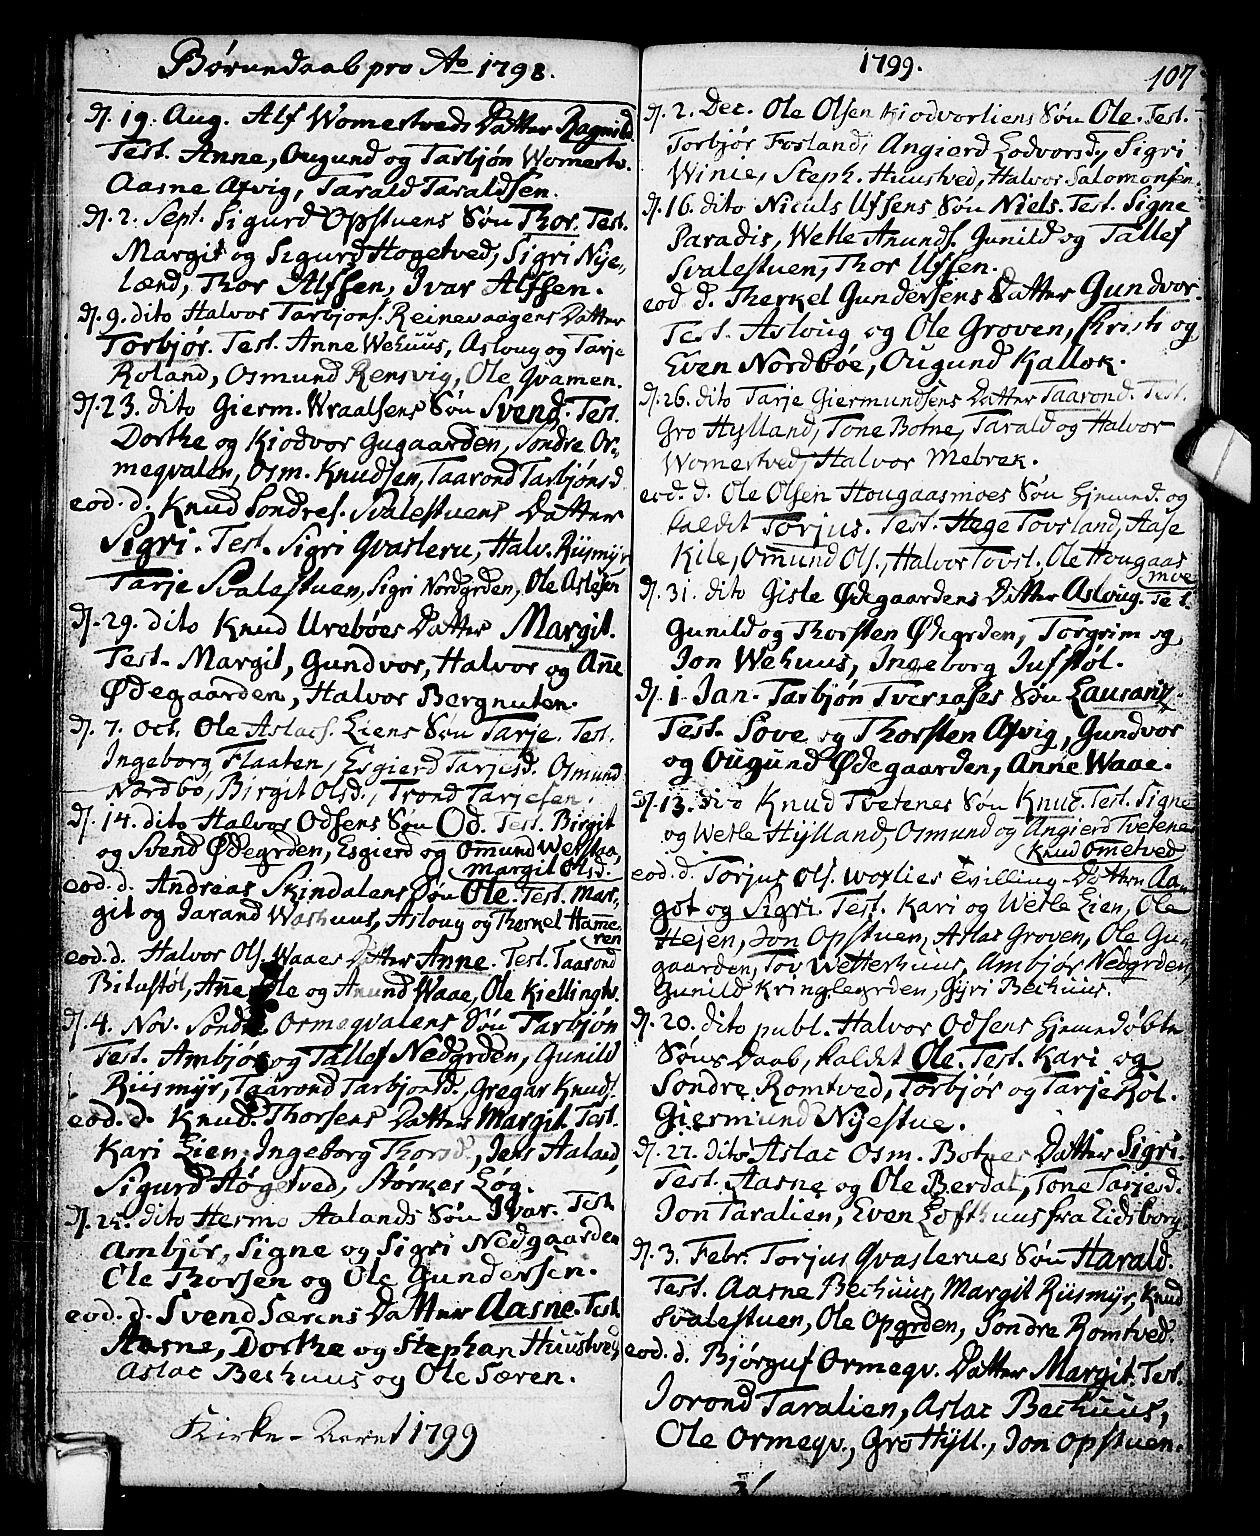 Børnedaab pro Ao 1798.
D. 19. Aug. Alf Womestveds Datter Ragnild.
Test. Anne, Ougund og Tarbjøn Womestv.
Aasne Afvig, Tarald Taraldsen.
D. 2. Sept. Sigurd Opstuens Søn Thor. Test.
Margit og Sigurd Høgetved, Sigri Nye-
lænd, Thor Alfsen, Ivar Alfsen.
D. 9. dito Halvor Tarbjons. Reinevaagens Datter
Torbjør. Test. Anne Wehuus, Asloug og Tarje
Roland, Osmund Rensvig, Ole Qvamen.
D. 23. dito Gierm. Wraalsens Søn Svend. Test.
Dorthe og Kiødvor Gugaarden, Søndre Or-
megvalen, Osm. Knudsen, Taarond Tarbjønsd
eod. d. Knud Sondres. Svalestuens Datter
Sigri. Test. Sigri Qvasleru, Halv. Riismyr
Tarje Svalestuen, Sigri Nordgrden, Ole Aslesen
D. 29. dito Knud Urebøes Datter Margit.
Test. Margit, Gundvor, Halvor og Anne
Ødegaarden, Halvor Bergnuten.
D. 7. Oct. Ole Aslacs. Liens Søn Tarje. Test.
Ingeborg Flaaten, Esgierd Tarjesd. Osmund
Nordbø, Birgit Olsd., Trond Tarjesen.
D. 14. dito Halvor Odsens Søn Od. Test. Birgit
og Svend Ødegrden, Esgierd og Omund Wetstaa,
Margit Olsd.
eod. d. Andreas Skindalens Søn Ole. Test. Mar-
git og Jarand Washuus, Asloug og Therkel Hame-
ren
eod. d. Halvor Ols. Waaes Datter Anne. Test. Taarond
Bitustøl, Anne, Ole og Anund Waae, Ole Kiellingtv.
D. 4. Nov. Søndre Ormegvalens Søn Tarbjøn
Test. Ambjør og Tallef Nedgrden, Gunild
Riismyr, Taarond Tarbjønsd., Gregar Knuds.
eod. d. Knud Thorsens Datter Margit. Test.
Kari Lien, Ingeborg Thorsd., Jens Aaland,
Sigurd Høgetved, Størker Løg.
D. 25. dito Hermo Aalands Søn Ivar. Test
Ambjør, Signe og Sigri Nedgaarden
Ole Thorsen og Ole Gundersen.
eod. d. Svend Særens Datter Aasne. Test.
Aasne, Dorthe og Stephan Huustved,
Aslac Bechuus og Ole Særen.
Kirke-Aaret 1799
1799.
107
D. 2. Dec. Ole Olsen Kiodvorliens Søn Ole. Test.
Torbjør Fosland, Angierd Lodvorsd, Sigri
Winie, Steph. Huustved, Halvor Salomonsen.
D. 16. dito Niculs Ulfsens Søn Niels. Test. Signe
Paradis, Wetle Anunds. Gunild og Tallef
Svalestuen, Thor Ulfsen.
eod. d. Therkel Gundersens Datter Gundvor.
Test. Asloug, og Ole Groven, Kristi og
Even Nordboe, Ougund Kallok.
D. 26. dito Tarje Giermundsens Datter Taarond. Test.
Gro Hylland, Tone Botne, Tarald og Halvor
Womestved, Halvor Mebrek.
eod. d. Ole Olsen Hougaasmoes Søn hjemd. og
kaldet Torjus. Test. Hege Tovsland, Aase
Kile, Omund Ols., Halvor Tovsl. Ole Hougaas
moe
D. 31. dito Gisle Ødegaardens Datter Asloug. Test.
Gunild og Thorsten Ødegrden, Torgrim og
Jon Wehuus, Ingeborg Jufstøl.
D. 1. Jan. Tarbjøn Tveraases Søn Lausanz.
Test. Sove og Thorsten Afvig, Gundvor
og Ougund Ødegaarden, Anne Waae.
D. 13. dito Knud Tvetenes Søn Knut. Test. Signe
og Wetle Hylland, Osmund og Angierd Tvetene
Knud Ometved
eod. d. Torjus Ols. Woxlies Tvilling-Døttre Aa-
got og Sigri. Test. Kari og Wetle Lien, Ole
Hejen, Jon Opstuen, Aslac Groven, Ole Gu-
gaarden, Tov Wetterhuus, Ambjør Nedgrden,
Gunild Kringlegrden, Gyri Bechuus.
D. 20. dito publ. Halvor Odsens hjemdøbte
Søns Daab, kaldet Ole. Test. Kari og
Søndre Romtved, Torbjør og Tarje Røl.
Giermund Nyestue.
D. 27. dito Aslac Osm. Botnes Datter Sigri.
Test. Aasne og Ole Berdal, Tone Tarjesd.
Jon Taralien, Even Lofthuus fra Eidsborg.
D. 3. Febr. Torjus Qvaslerues Søn Harald.
Test. Aasne Bechuus, Margit Riismyr, Knud
Svalestuen, Ole Opgrden, Søndre Romtved.
eod. d. Bjørguf Ormeqv. Datter Margit. Test.
Jorond Taralien, Aslac Bechuus,
Ole Ormeqv., Gro Hyll., Jon Opstuen.